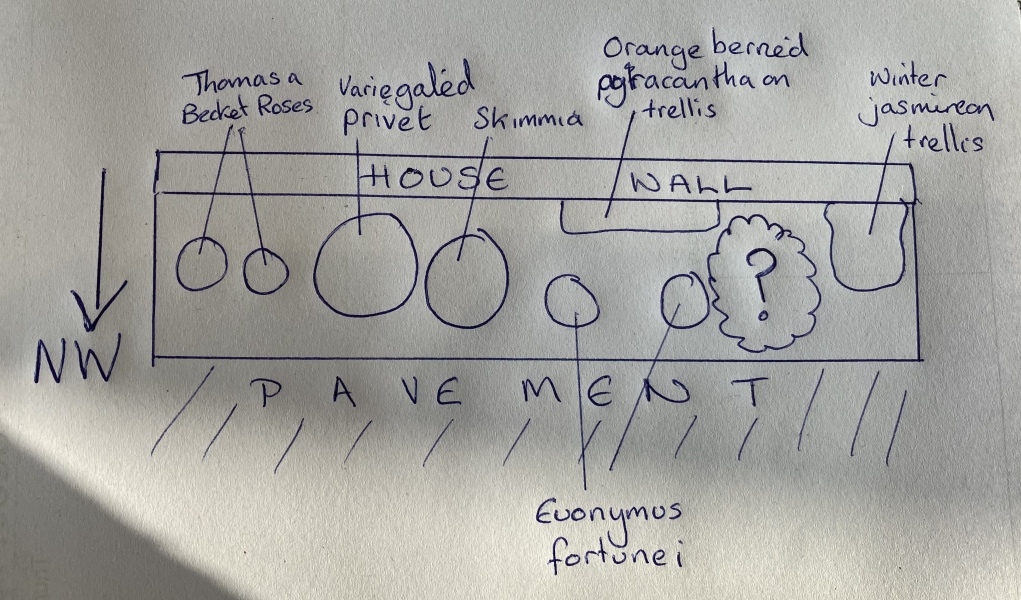 Thomas a
Becket Roses
Variegated
privet
Skimmia
Orange berried
pyracantha on
trellis
Winter
jasmine on
trellis
HOUSE WALL
?
NW
PAVEMENT
Euonymus
fortunei